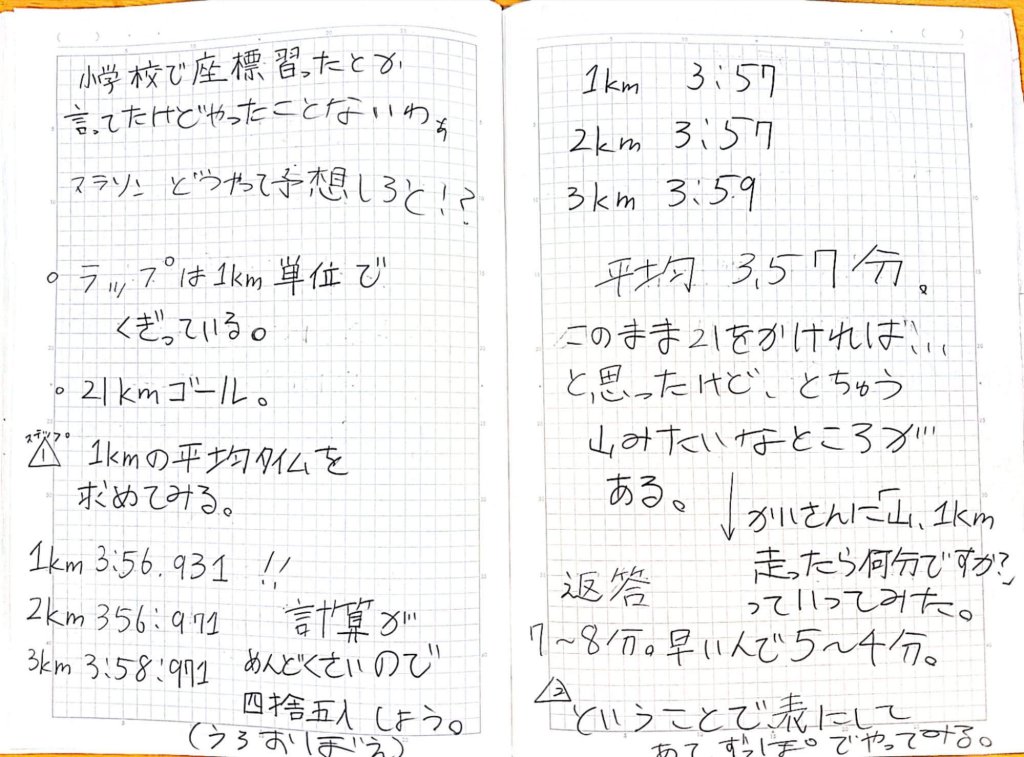 小学校で座標習ったとか
言ってたけどやったことないわぁ
マラソン どうやって予想しろと!?
○ ラップは1km 単位で
くぎっている。
○ 21kmゴール。
ステップ
1
1kmの平均タイムを
求めてみる。
1km 3:56.931 !!
2km 356:971
3km 3:58:971
計算が
めんどくさいので
四捨五入しよう。
(うろおぼえ)
1km 3:57
2km 3:57
3km 3:59
平均 3.57分。
このまま21をかければ...
と思ったけど、とちゅう
山みたいなところが
ある。
↓
かいさんに「山、1km
走ったら何分ですか?」
っていってみた。
返答
7〜8分。早いんで5〜4分。
2
ということで表にして
あてずっぽうでやってみる。